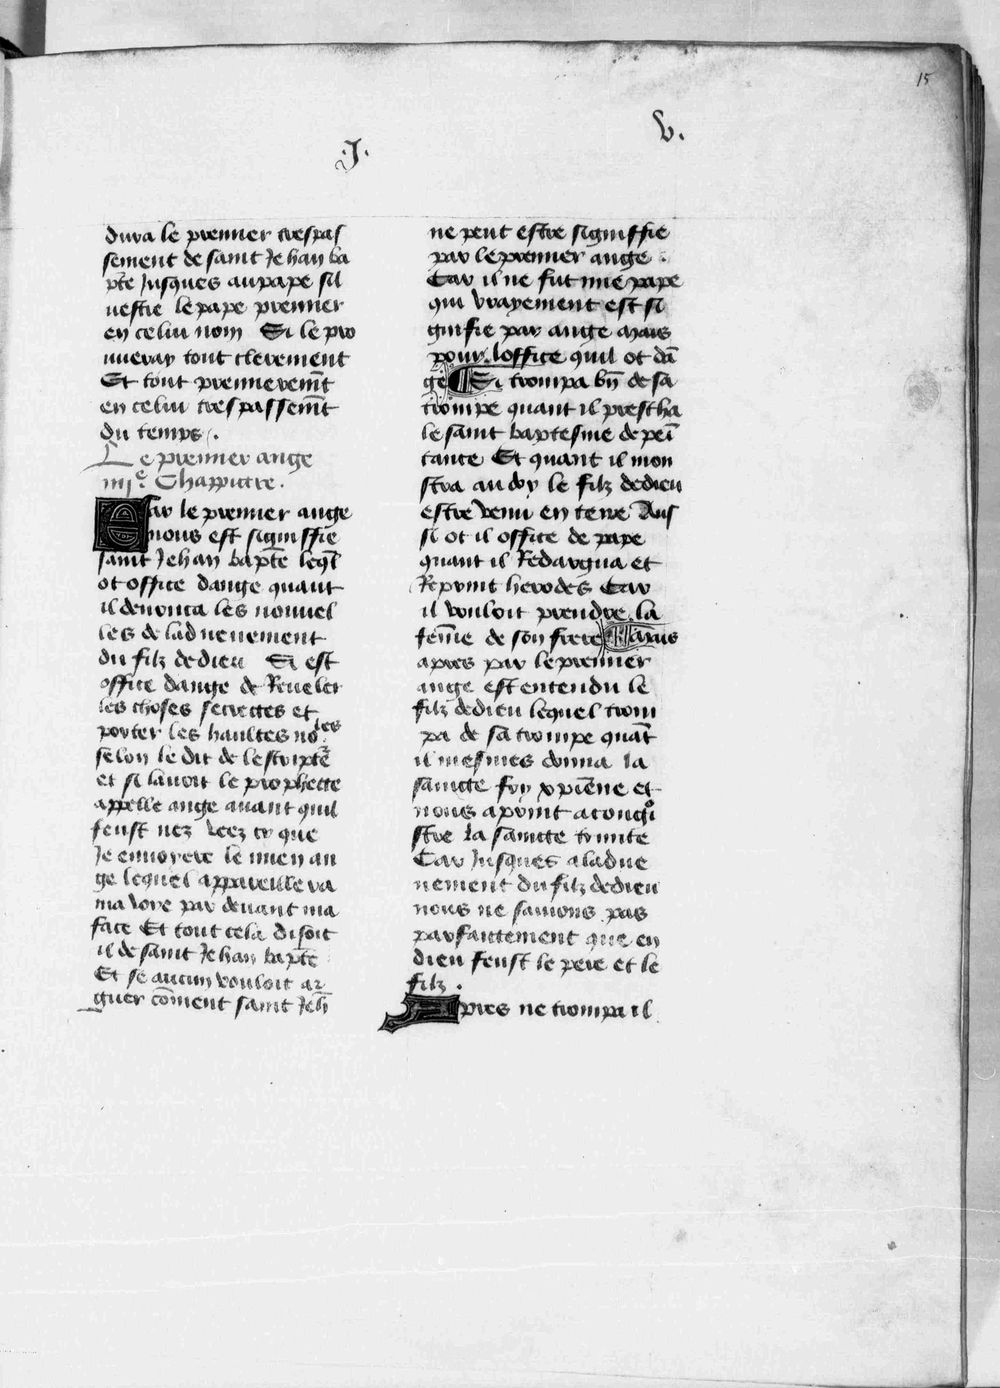 15
.J. v.
dura le premier trespas
sement de saint Jehan ba
pt̄e Jusques au pape sil
uestre le pape premier
en celui nom Si le pro
uueray tout clerement
Et tout premierem̄t
en celui trespassem̄t
du temps.
Le premier ange
iiije. Chappittre.
Car le premier ange
nous est signiffie
saint Jehan bapt̄e leql̄
ot office dange quant
il denonca les nouuel
les de laduenement
du filz dedieu Si est
office dange de Reueler
les choses secrettes et
porter les haultes noles
selon le dit de lescript̄e
et si lauoit le prophette
appelle ange auant quil
feust nez veez cy que
Je enuoyere le mien an
ge lequel appareillera
ma voye par deuant ma
face Et tout cela disoit
il de saint Jehan bapt̄e
Et se aucun vouloit ar
guer cōment saint Jeh̄
ne peut estre signiffie
par le premier ange.
Car il ne fut mie pape
qui vrayement est si
gnifie par ange mais
pour loffice quil ot dā
ge Si trompa bn̄ de sa
trompe quant il prescha
le saint baptesme de peī
tance Et quant il mon
stra au doy le filz dedieu
estre venu en terre Aus
si ot il office de pape
quant il Redargua et
Reprint herodes Car
il vouloit prendre la
fem̄e de son frere Mais
apres par le premier
ange est entendu le
filz dedieu lequel trom
pa de sa trompe quāt
il mesmes donna la
saincte foy xpīene et
nous aprint a congoi
stre la saincte trinite
Car Jusques a ladue
nement du filz dedieu
nous ne sauions pas
parfaittement que en
dieu feust le pere et le
filz.
Apres ne trompa il